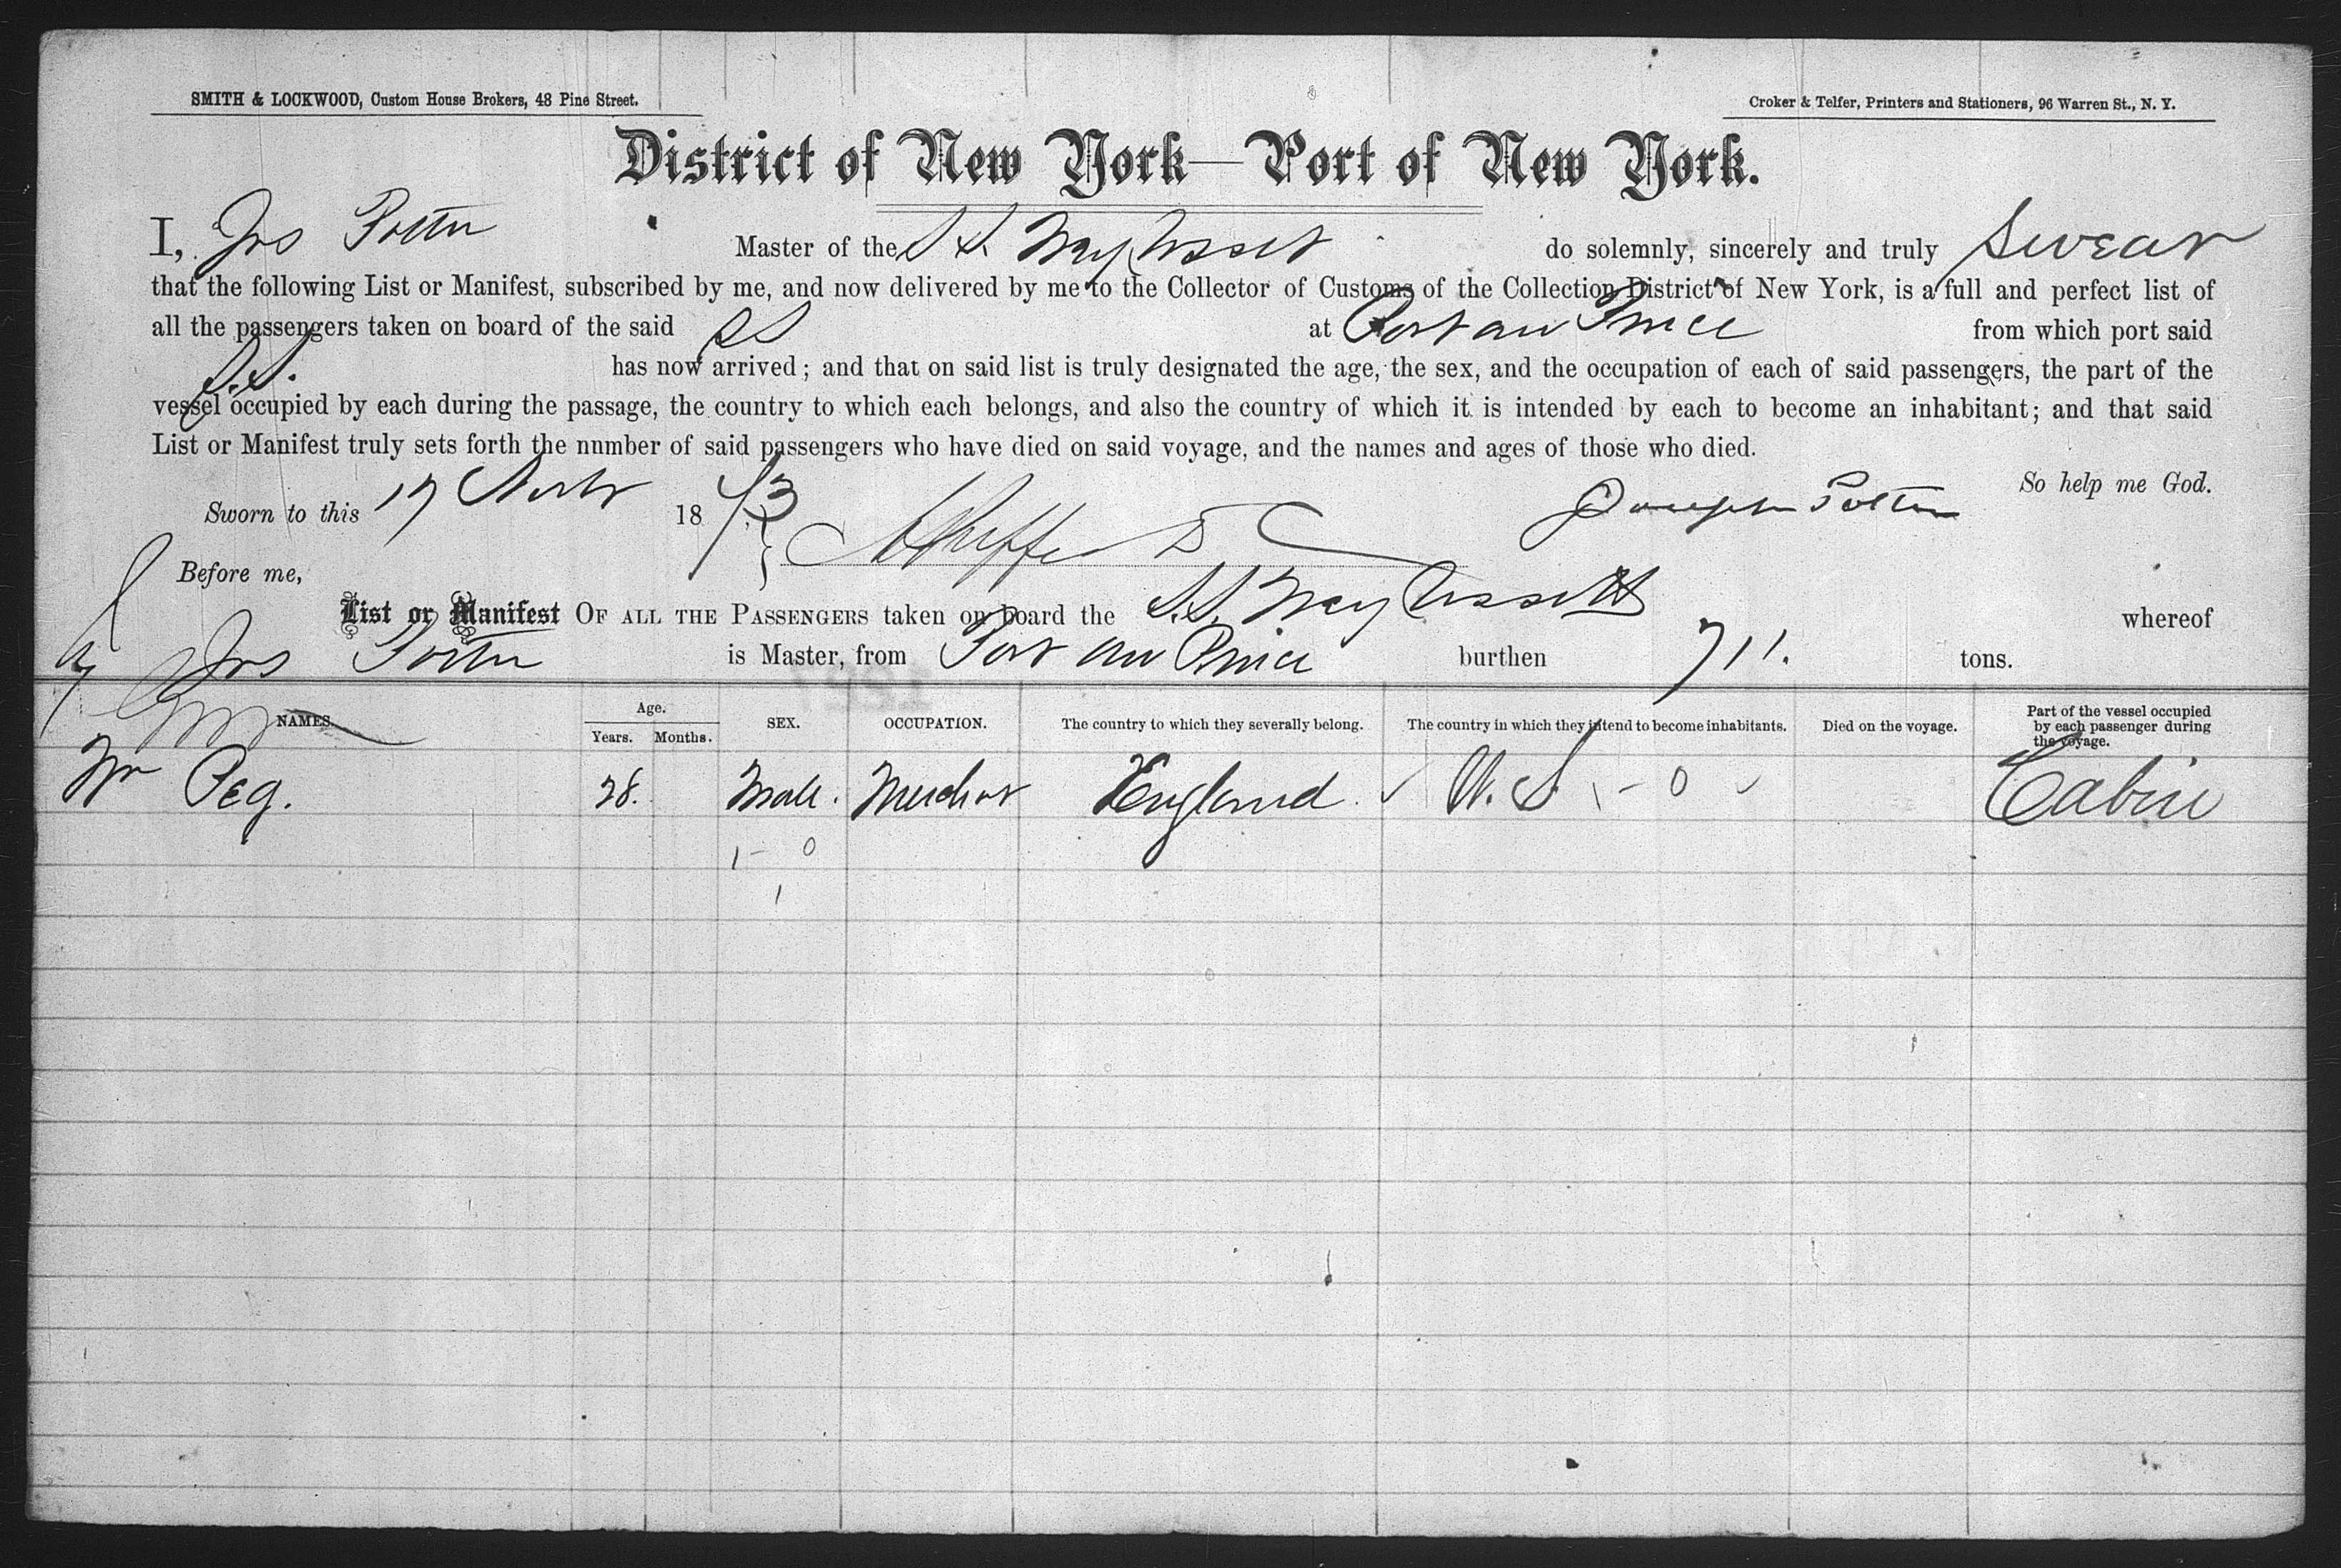 SMITH & LOCKWOOD, Custom House Brokers, 48 Pine Street.
Croker & Telfer, Printers and Stationers, 96 Warren St., N. Y.
District of New York—Port of New York.
I, Jos Potter Master of the S S. do solemnly, sincerely and truly swear
that the following List or Manifest, subscribed by me, and now delivered by me to the Collector of Customs of the Collection District of New York, is a full and perfect list of
all the passengers taken on board of the said SS at Port au Prince from which port said
S.S. has now arrived; and that on said list is truly designated the age, the sex, and the occupation of each of said passengers, the part of the
vessel occupied by each during the passage, the country to which each belongs, and also the country of which it is intended by each to become an inhabitant; and that said
List or Manifest truly sets forth the number of said passengers who have died on said voyage, and the names and ages of those who died.
So help me God.
Sworn to this 17 18 73 Joseph Potter
Before me,
List or Manifest OF ALL THE PASSENGERS taken on board the S.S. whereof
Jos Potter is Master, from Port au Prince burthen 711. tons.
NAMES. Age. Years. Months. SEX. OCCUPATION. The country to which they severally belong. The country in which they intend to become inhabitants. Died on the voyage. Part of the vessel occupied by each passenger during the voyage.
Wm Peg. 28. Male. England U. S. 1 - 0 Cabin
1 - 0
1